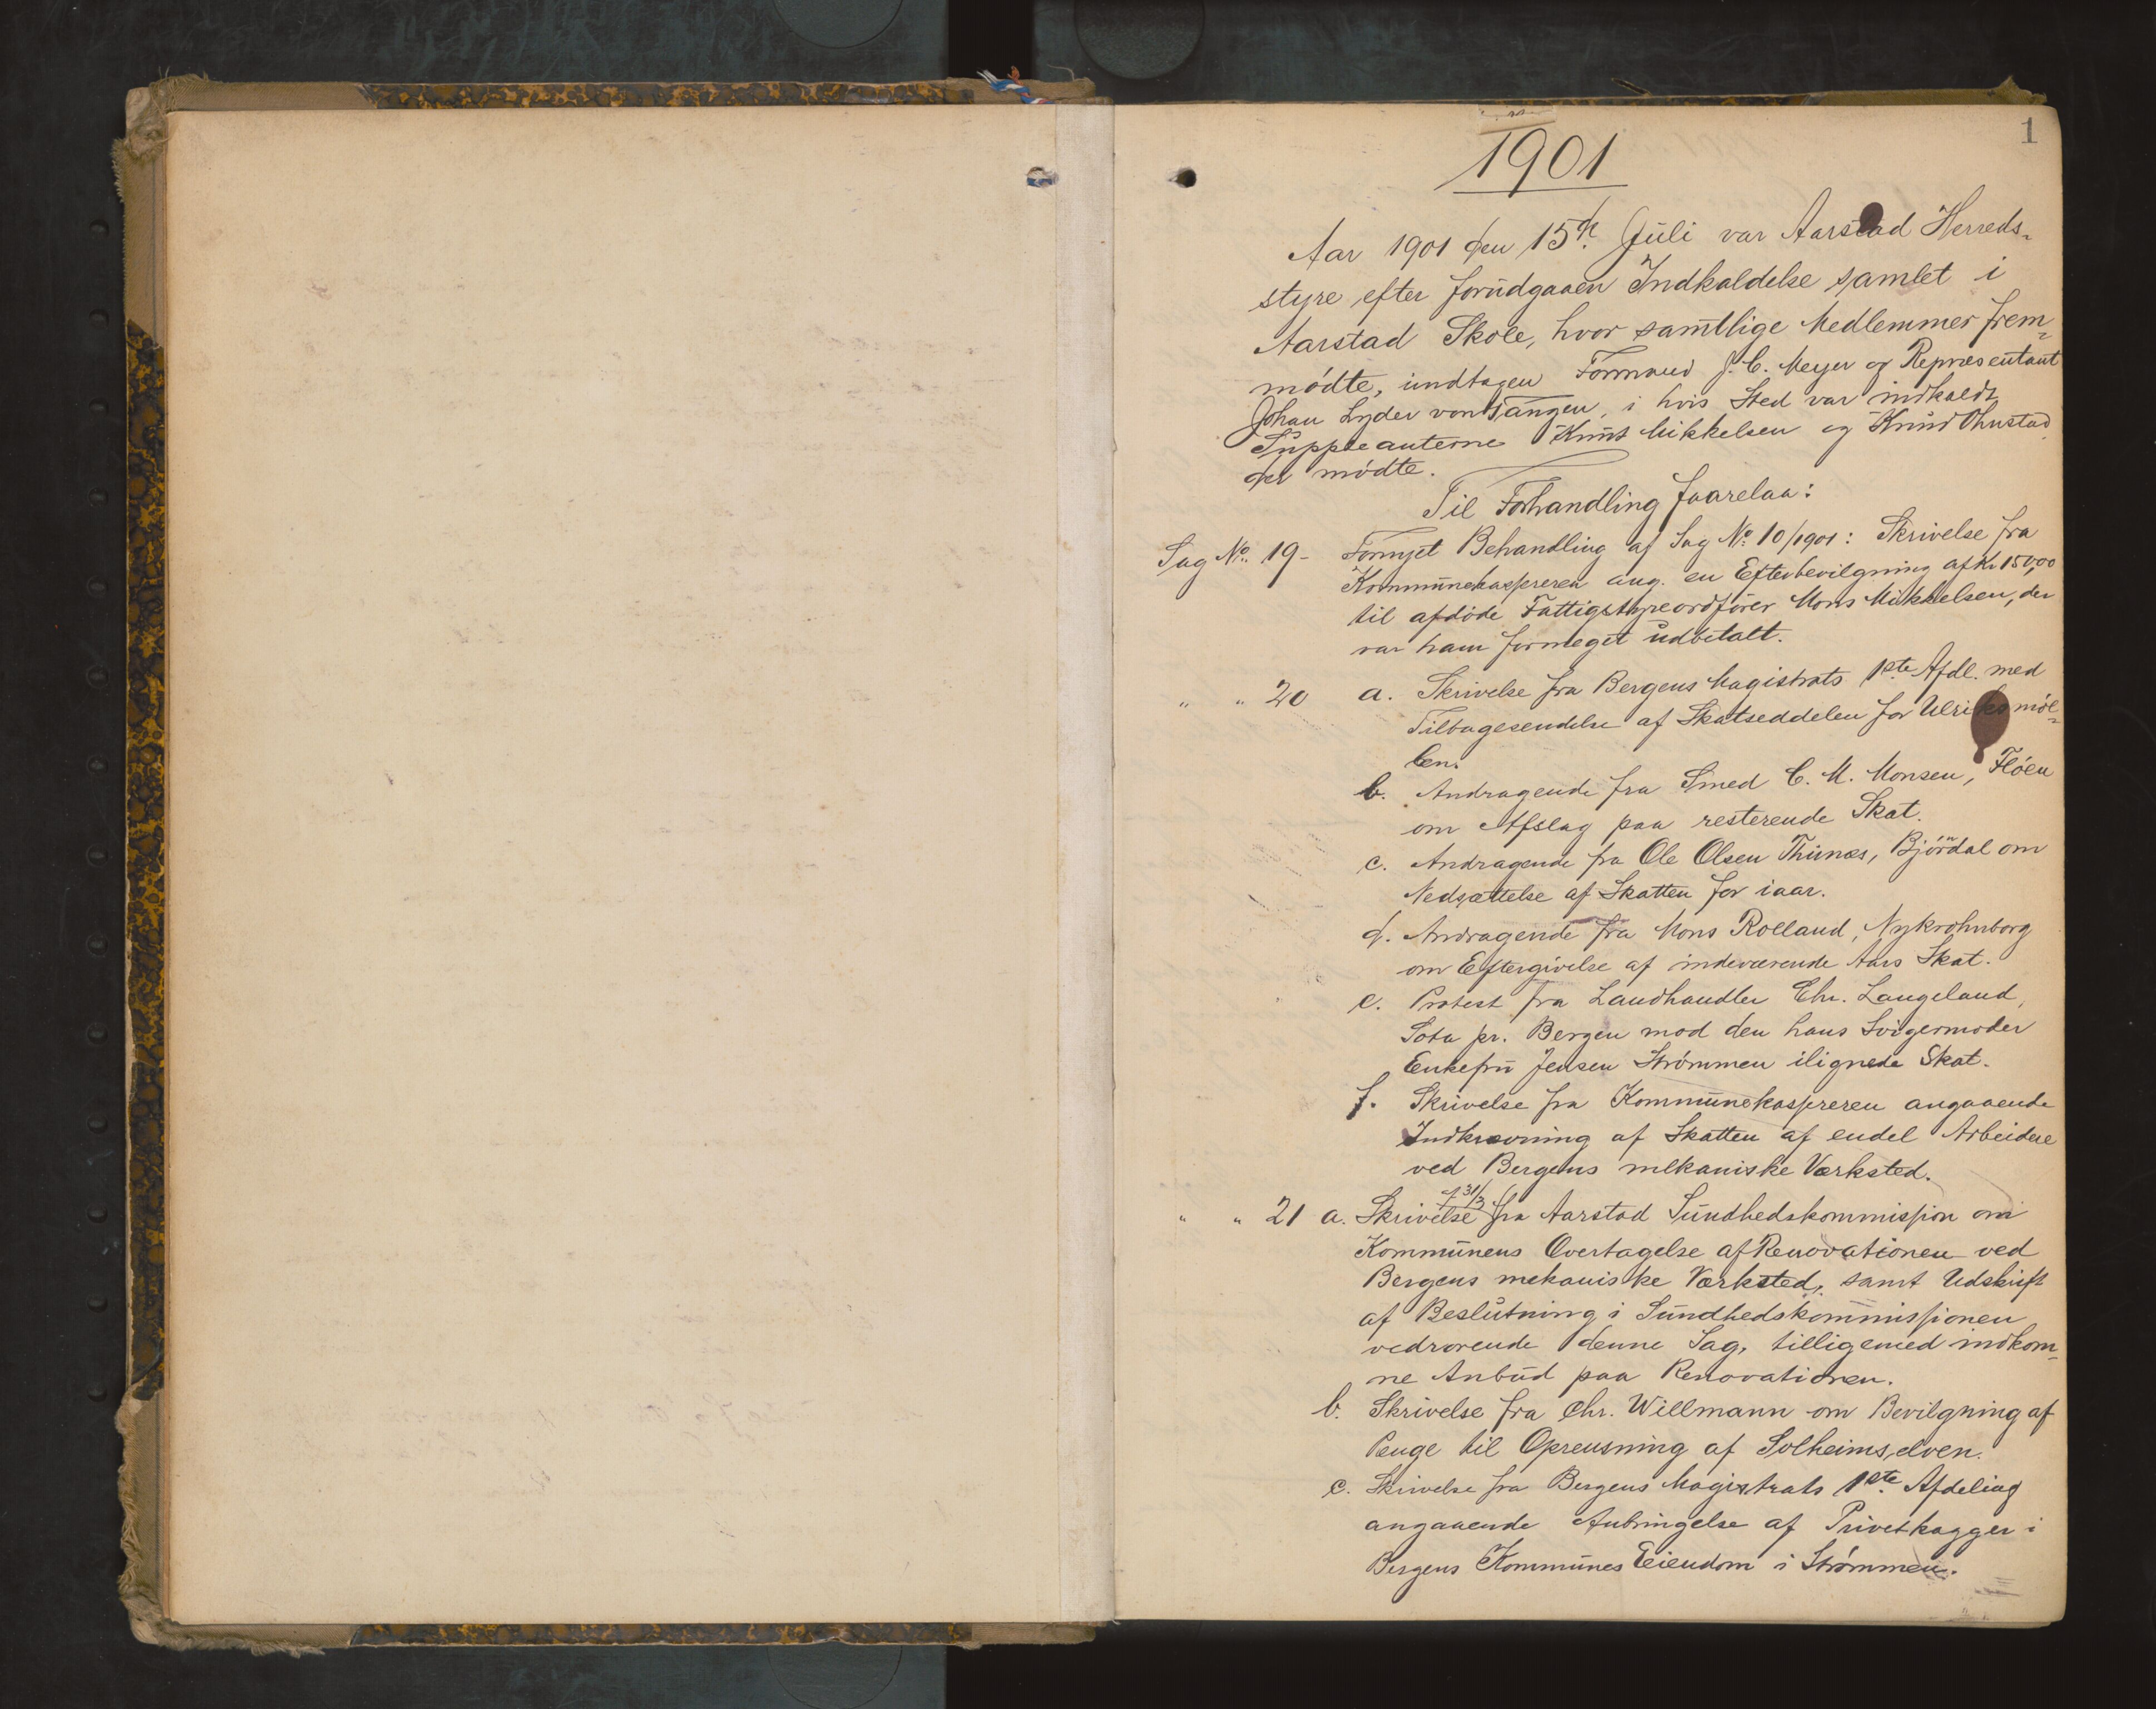 1
1901
Aar 1901 den 15de Juli var Aarstad Herreds-
styre efter forudgaaen Indkaldelse samlet i
Aarstad Skole, hvor samtlige Medlemmer frem-
mødte, undtagen Formand J. C. Meyer og Repræsentant
Johan Lyder von Tangen, i hvis Sted var indkaldt
Suppleanterne Knut Mikkelsen og Knud
der mødte.
Til Forhandling foarelaa:
Sag No. 19- Fornyet Behandling af Sag No. 10/1901: Skrivelse fra
Kommunekasserern ang. en Efterbevilgning af Kr 150,00
til afdøde Fattigstyreordfører Mons Mikkelsen, der
var ham formeget udbetalt.
" " 20 a. Skrivelse fra Bergens Magistrats 1ste Afdl. med
Tilbagesendelse af Skatseddelen for Ulriksmøl-
len.
b. Andragende fra Smed C. M. Monsen, Fløen
om Afslag paa resterende Skat.
c. Andragende fra Ole Olsen Thunæs, Bjørndal om
Nedsættelse af Skatten for iaar.
d. Andragende fra Mons Rolland, Nykrohnborg
om Eftergivelse af indeværende Aars Skat.
e. Protest fra Landhandler Chr. Langeland,
pr. Bergen mod den hans Svigermoder
Enkefru Jensen Strømmen ilignede Skat.
f. Skrivelse fra Kommunekassereren angaaende
Indkrævning af Skatten af endel Arbeidere
ved Bergens mekaniske Værksted.
" " 21 a. Skrivelse af 31/3 fra Aarstad Sundhedskommission om
Kommunens Overtagelse af Renovationen ved
Bergens mekaniske Værksted, samt Udskrift
af Beslutning i Sundhedskommissionen
vedrørende denne Sag, tilligemed indkom-
ne Anbud paa Renovationen.
b. Skrivelse fra Chr. Willmann om Bevilgning af
Penge til Oprensning af Solheimselven.
c. Skrivelse fra Bergens Magistrats 1ste Afdeling
angaaende Anbringelse af Privetkagger i
Bergens Kommunes Eiendom i Strømmen.